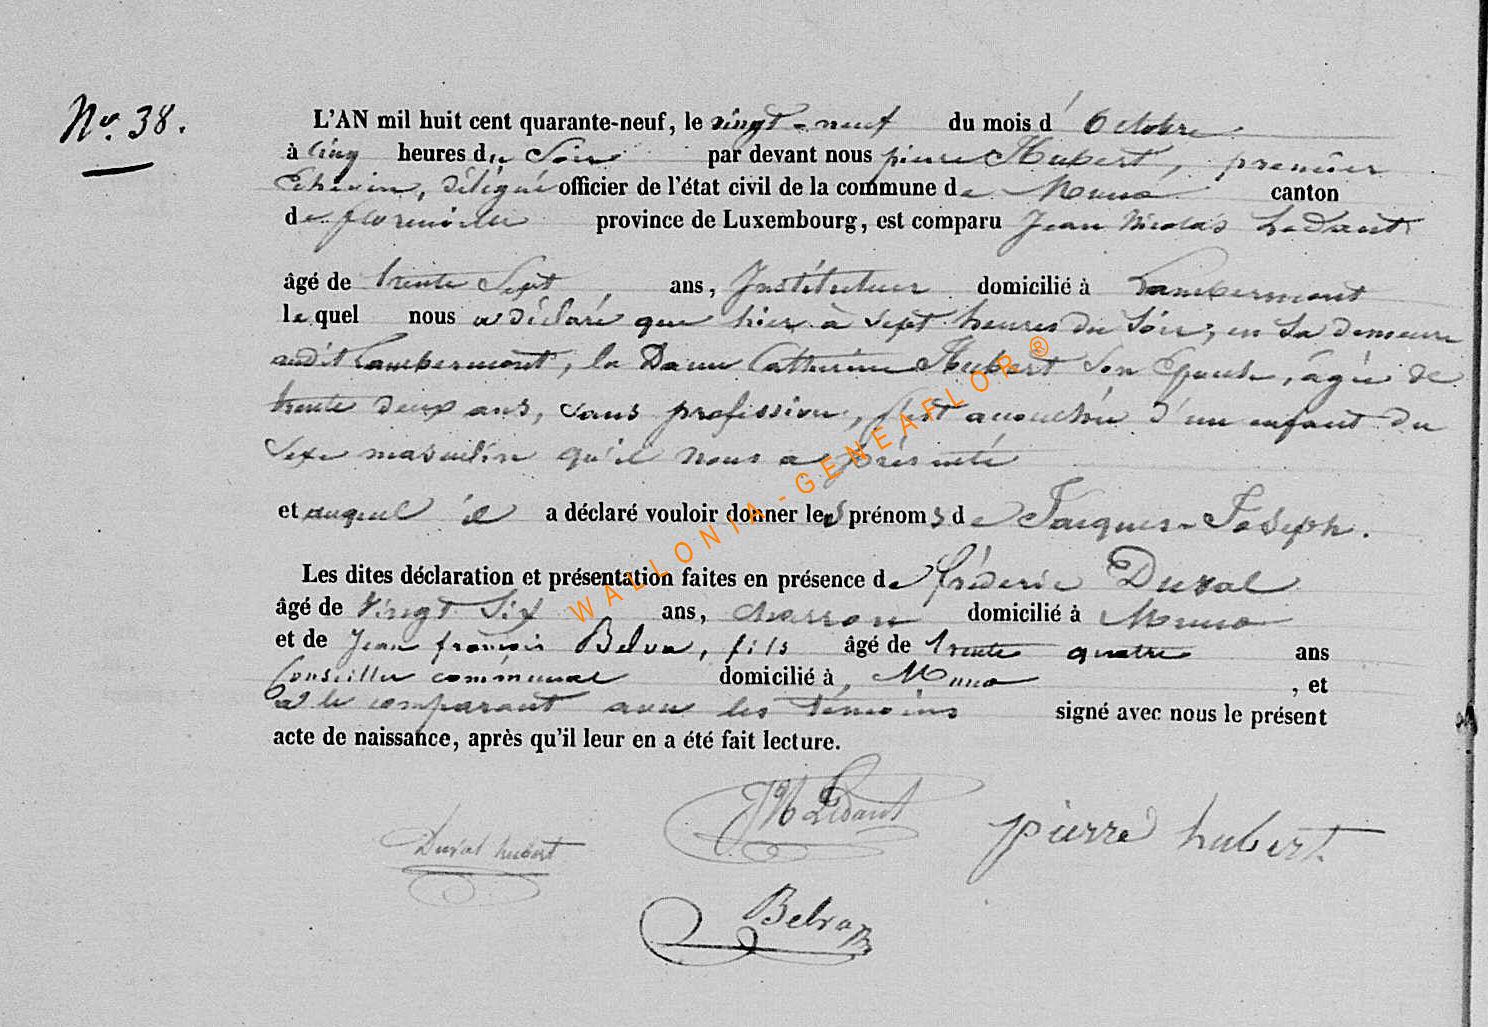 No. 38.
L'AN mil huit cent quarante-neuf, le vingt-neuf du mois d'Octobre
à cinq heures du Soir par devant nous pierre Hubert, premier
Echevin, délégué officier de l'état civil de la commune de Muno canton
de florenville province de Luxembourg, est comparu Jean Nicolas Ledant
âgé de trente Sept ans, Instituteur domicilié à Lambermont
lequel nous a déclaré que hier à sept heures du Soir, en Sa demeure
audit Lambermont, la Dame Catherine Hubert Son Epouse, âgée de
trente deux ans, Sans profession, s'est accouchée d'un enfant du
Sexe masculin qu'il nous a présenté
et auquel il a déclaré vouloir donner les prénoms de Jacques-Joseph.
Les dites déclaration et présentation faites en présence de fréderic Duval
âgé de vingt Six ans, charron domicilié à Muno
et de Jean françois Belva, fils âgé de trente quatre ans
Conseiller communal domicilié à Muno, et
a le comparant avec les témoins signé avec nous le présent
acte de naissance, après qu'il leur en a été fait lecture.
JN Ledant
pierre hubert
Duval hubert
Belva
WALLONIA-GENEAFLOR®